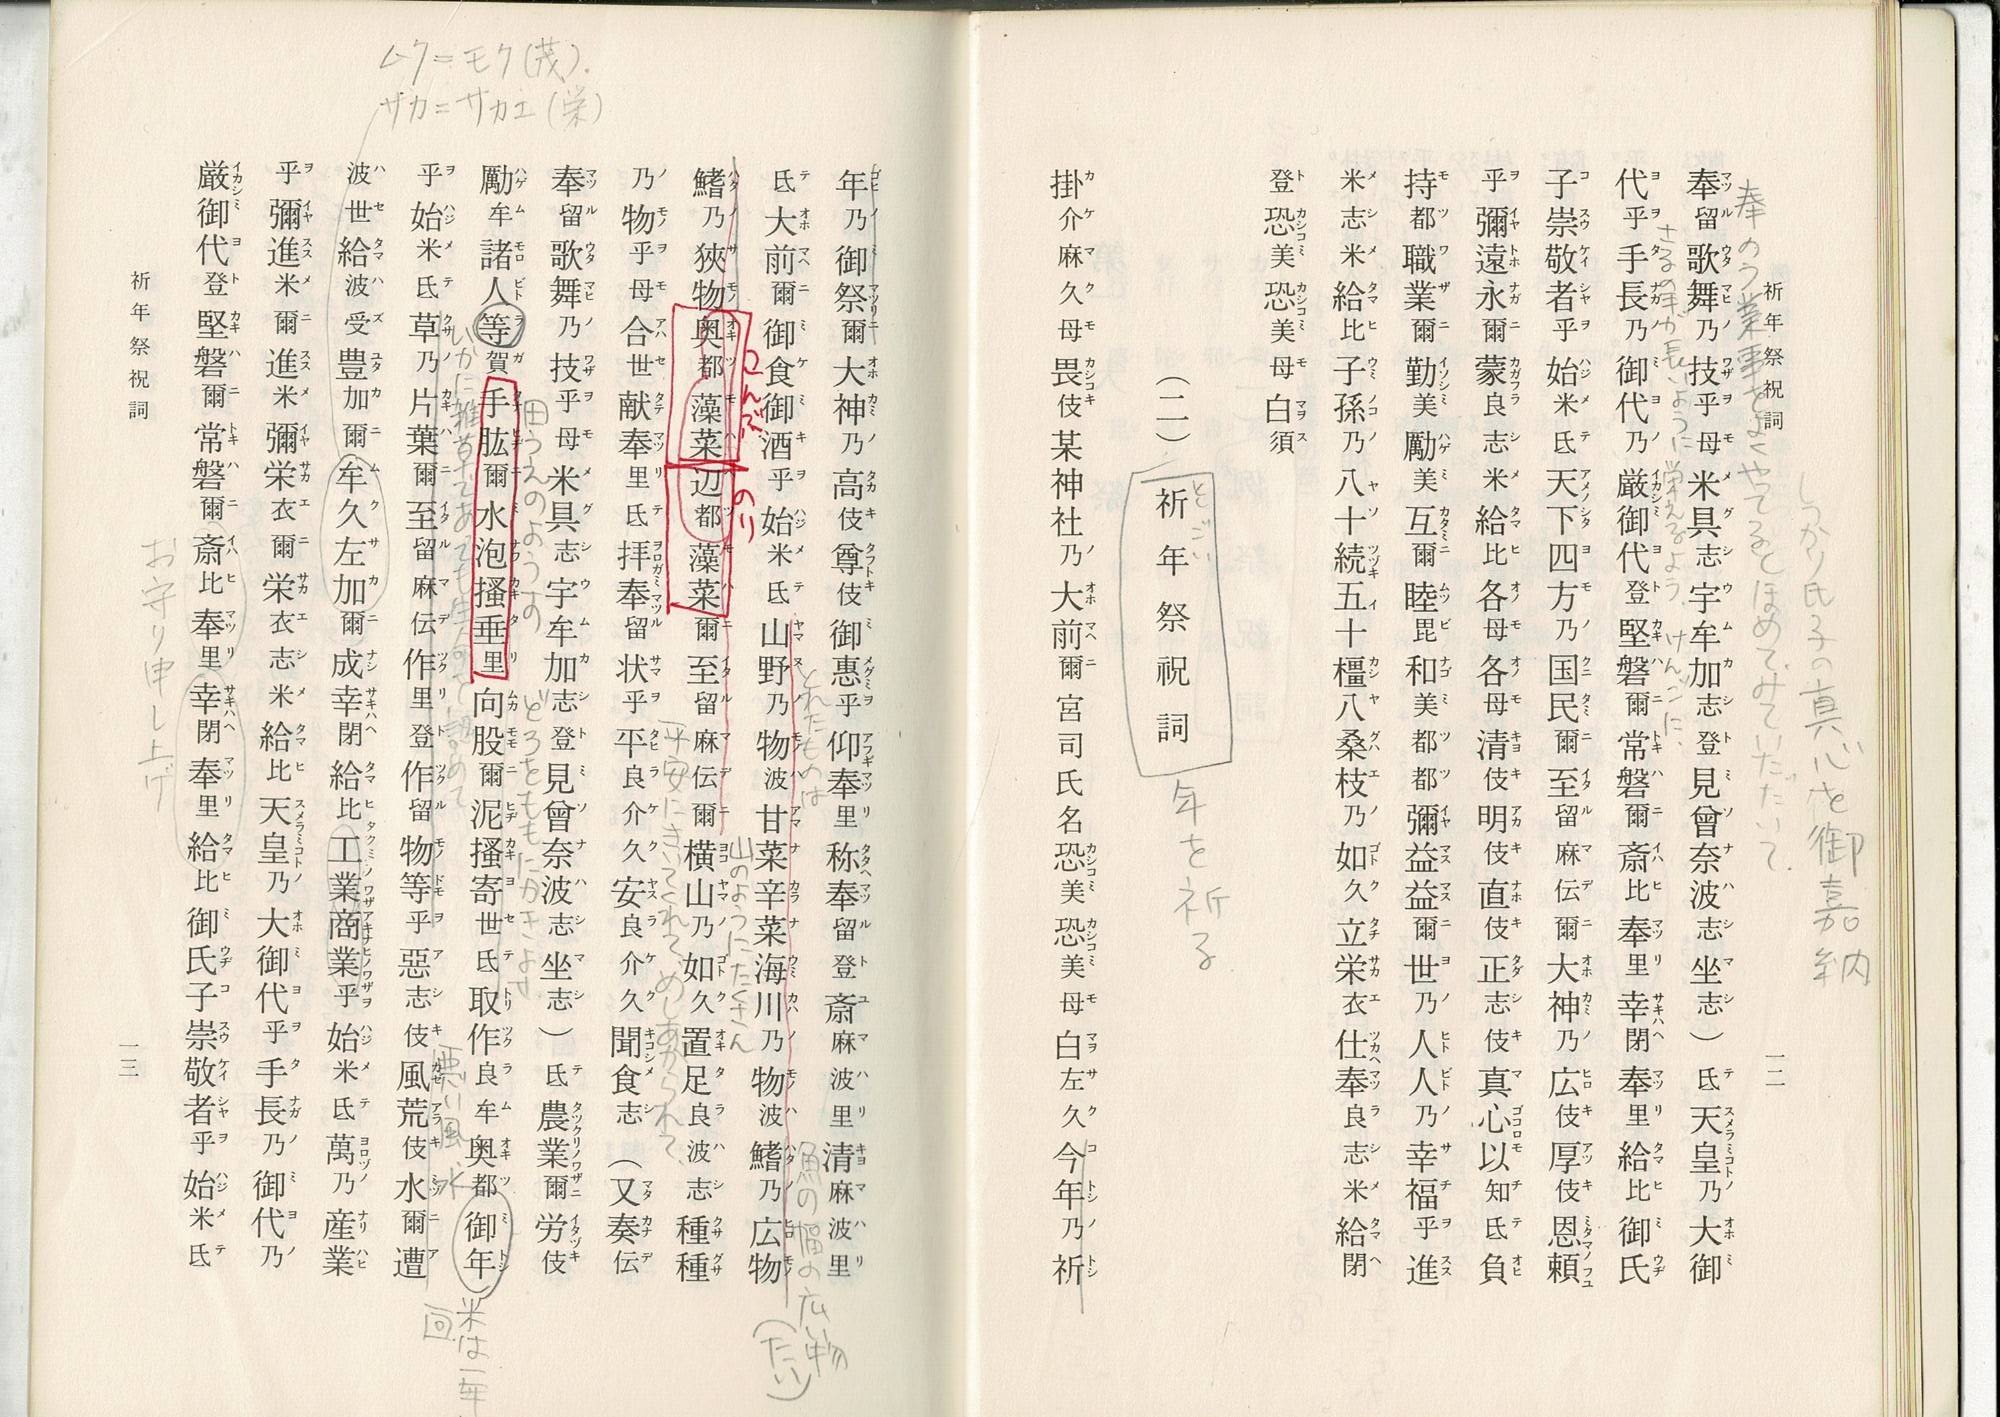 祈年祭祝詞
一二
奉留歌舞乃技乎母米具志宇牟加志登見曾奈波志坐志)氐天皇乃大御
代乎手長乃御代乃厳御代登堅磐爾常磐爾斎比奉里幸閉奉里給比御氏
子崇敬者乎始米氐天下四方乃国民爾至留麻伝爾大神乃広伎厚伎恩頼
乎彌遠永爾蒙良志米給比各母各母清伎明伎直伎正志伎真心以知氐負
持都職業爾勤美勵美互爾睦毘和美都都彌益益爾世乃人人乃幸福乎進
米志米給比子孫乃八十続五十橿八桑枝乃如久立栄衣仕奉良志米給閉
登恐美恐美母白須
(二)祈年祭祝詞
としごい
年を祈る
掛介麻久母畏伎某神社乃大前爾宮司氏名恐美恐美母白左久今年乃祈
しっかり氏子の真心を御嘉納
年乃御祭爾大神乃高伎尊伎御惠乎仰奉里称奉留登斎麻波里清麻波里
氐大前爾御食御酒乎始米氐山野乃物波甘菜辛菜海川乃物波鰭乃広物
鰭乃狹物奥都藻菜辺都藻菜爾至留麻伝爾横山乃如久置足良波志種種
乃物乎母合世献奉里氐拝奉留状乎平良介久安良介久聞食志(又奏伝
奉留歌舞乃技乎母米具志宇牟加志登見曾奈波志坐志)氐農業爾労伎
勵牟諸人等賀手肱爾水泡搔垂里向股爾泥搔寄世氐取作良牟奥都御年
乎始米氐草乃片葉爾至留麻伝作里登作留物等乎惡志伎風荒伎水爾遭
波世給波受豊加爾牟久左加爾成幸閉給比工業商業乎始米氐萬乃産業
乎彌進米爾進米彌栄衣爾栄衣志米給比天皇乃大御代乎手長乃御代乃
厳御代登堅磐爾常磐爾斎比奉里幸閉奉里給比御氏子崇敬者乎始米氐
祈年祭祝詞
一三
ムク=モク(茂).
サカ=サカエ(栄)
こんぶ
のり
とれたものは
魚の幅の広い物
(たい)
山のようにたくさん
平安にきいてくれて、めしあがられて、
田うえのようす
どろをももにかきよせ
悪い風、水
米は一年
一回
お守り申し上げ